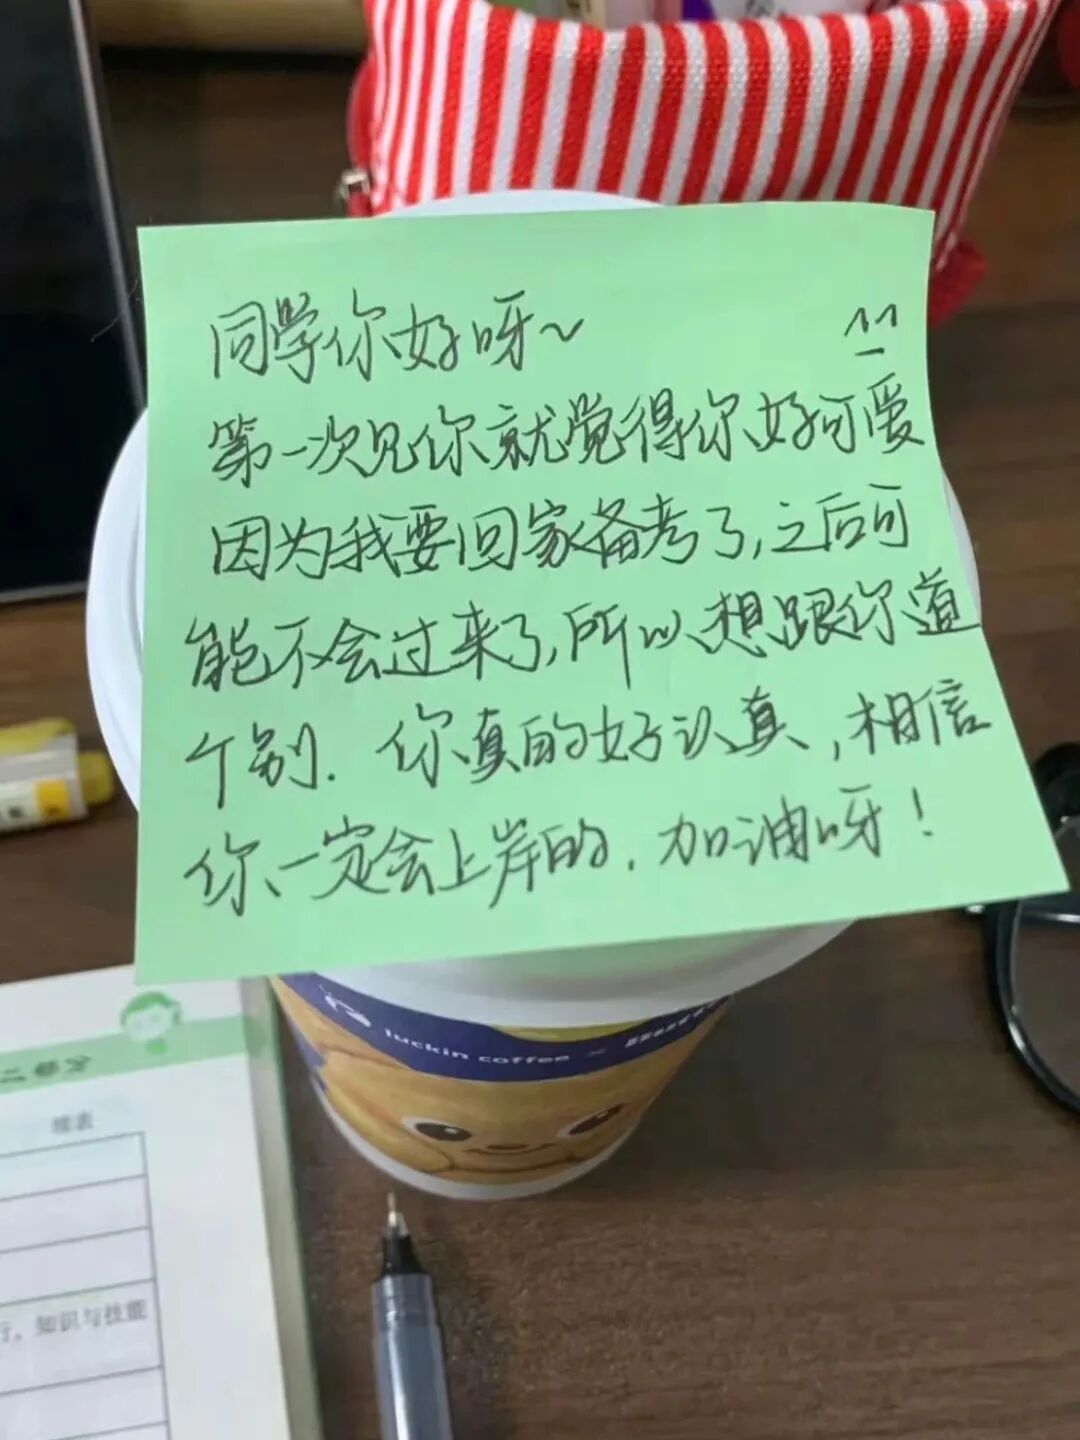 同学你好呀~
第一次见你就觉得你好可爱
因为我要回家备考了,之后可
能不会过来了,所以想跟你道
个别. 你真的好认真,相信
你一定会上岸的. 加油呀!
luckin coffee ×
续表
行，知识与技能